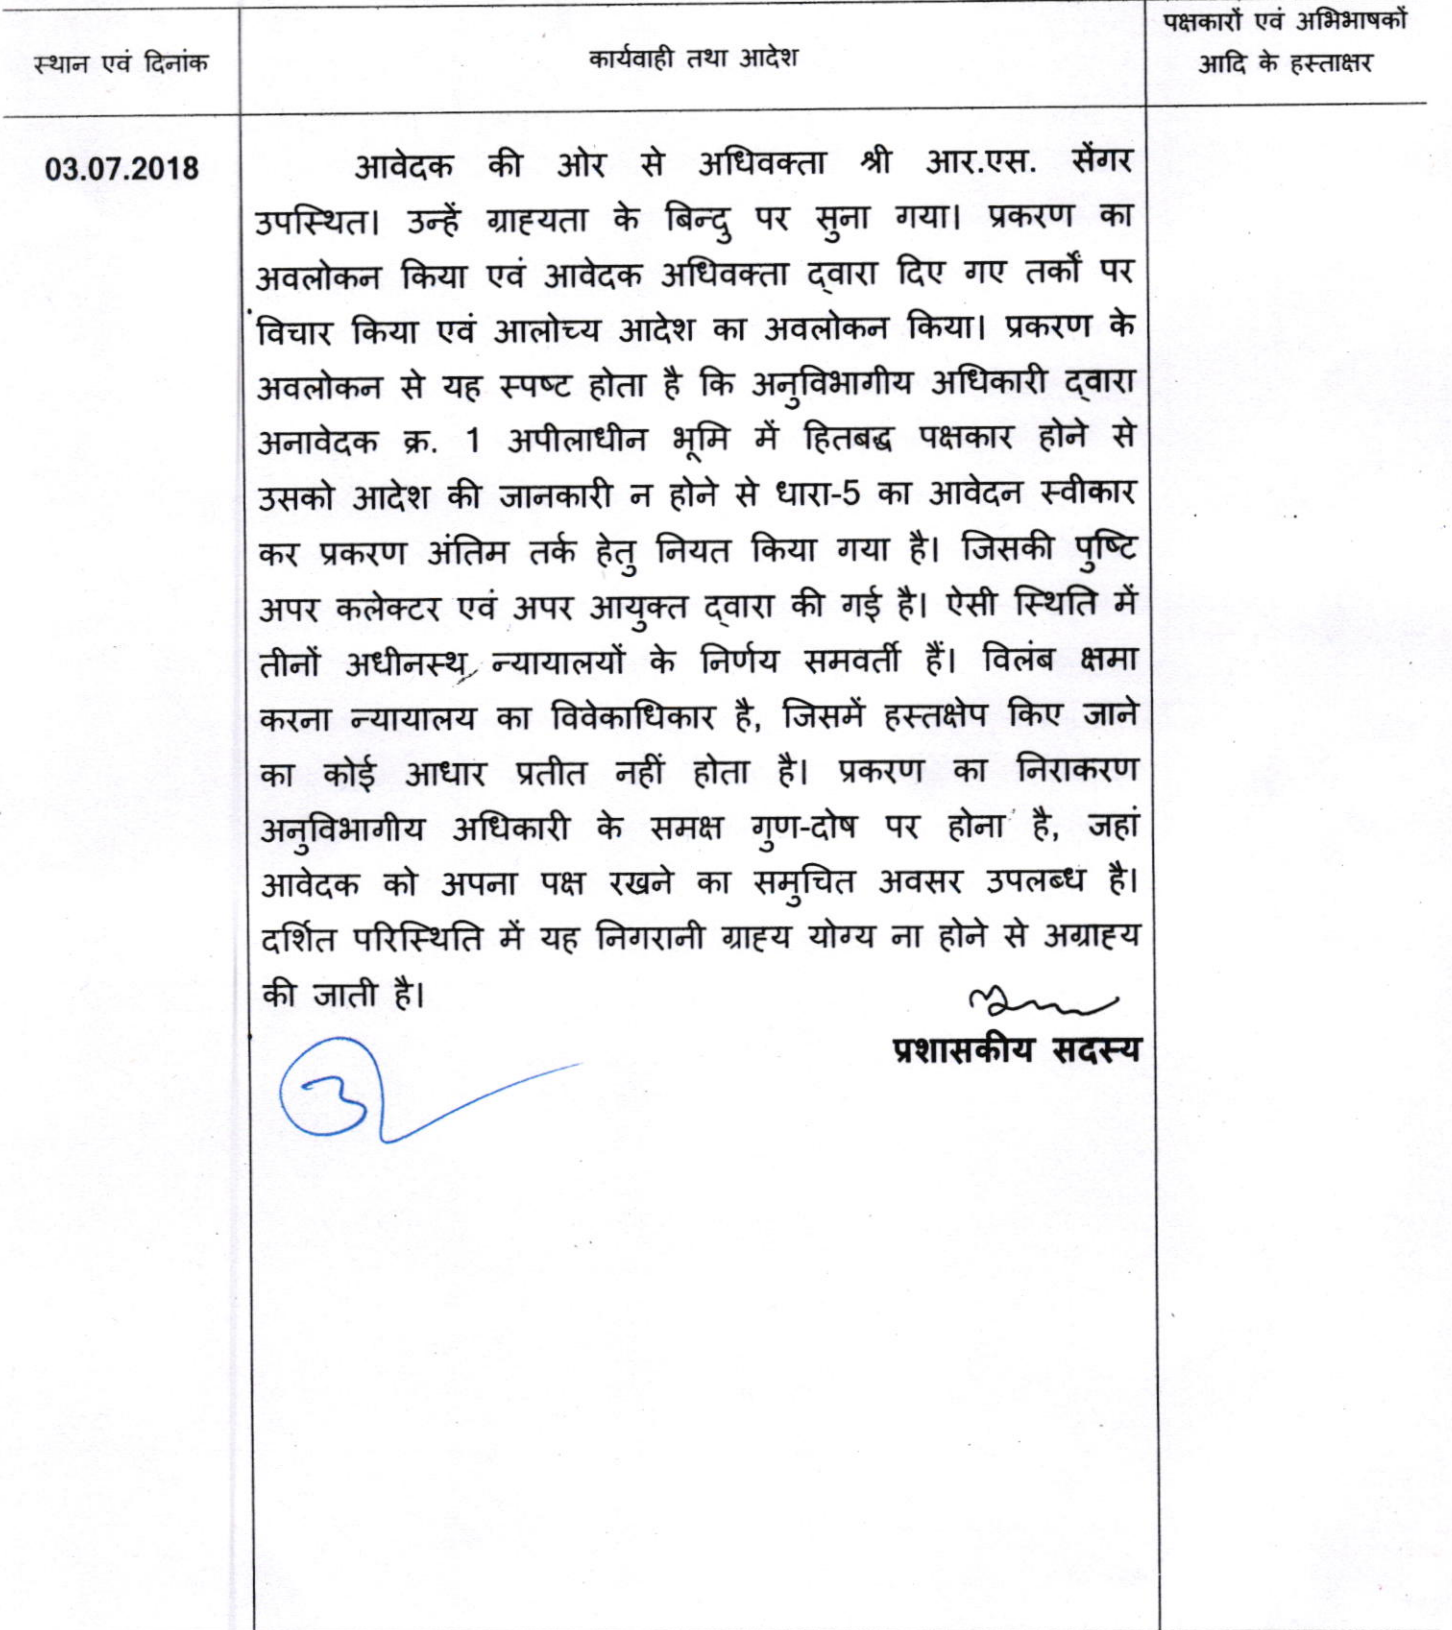 स्थान एवं दिनांक
कार्यवाही तथा आदेश
पक्षकारों एवं अभिभाषकों
आदि के हस्ताक्षर
03.07.2018
आवेदक की ओर से अधिवक्ता श्री आर.एस. सेंगर
उपस्थित। उन्हें ग्राह्यता के बिन्दु पर सुना गया। प्रकरण का
अवलोकन किया एवं आवेदक अधिवक्ता द्वारा दिए गए तर्कों पर
विचार किया एवं आलोच्य आदेश का अवलोकन किया। प्रकरण के
अवलोकन से यह स्पष्ट होता है कि अनुविभागीय अधिकारी द्वारा
अनावेदक क्र. 1 अपीलाधीन भूमि में हितबद्ध पक्षकार होने से
उसको आदेश की जानकारी न होने से धारा-5 का आवेदन स्वीकार
कर प्रकरण अंतिम तर्क हेतु नियत किया गया है। जिसकी पुष्टि
अपर कलेक्टर एवं अपर आयुक्त द्वारा की गई है। ऐसी स्थिति में
तीनों अधीनस्थ न्यायालयों के निर्णय समवर्ती हैं। विलंब क्षमा
करना न्यायालय का विवेकाधिकार है, जिसमें हस्तक्षेप किए जाने
का कोई आधार प्रतीत नहीं होता है। प्रकरण का निराकरण
अनुविभागीय अधिकारी के समक्ष गुण-दोष पर होना है, जहां
आवेदक को अपना पक्ष रखने का समुचित अवसर उपलब्ध है।
दर्शित परिस्थिति में यह निगरानी ग्राह्य योग्य ना होने से अग्राह्य
की जाती है।
प्रशासकीय सदस्य